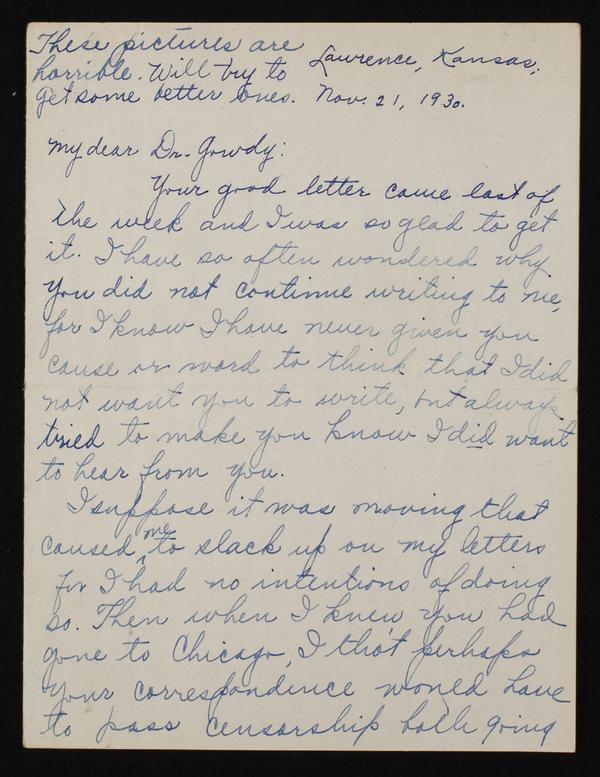 These pictures are
horrible. Will try to
get some better ones.
Lawrence, Kansas,
Nov. 21, 1930.
My dear Dr. Gowdy:
Your good letter came last of
the week and I was so glad to get
it. I have so often wondered why
you did not continue writing to me,
for I know I have never given you
cause or word to think that I did
not want you to write, but always
tried to make you know I did want
to hear from you.
I suppose it was moving that
caused me to slack up on my letters
for I had no intentions of doing
so. Then when I knew you had
gone to Chicago, I tho't perhaps
your correspondence would have
to pass censorship both going